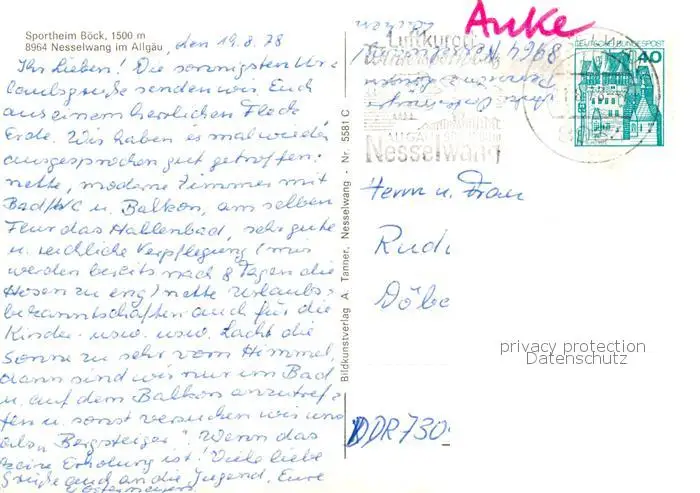 Sportheim Böck, 1500 m
8964 Nesselwang im Allgäu
, den 19.8.78
Ihr Lieben! Die sonnigsten Ur-
laubsgrüße senden wir Euch
aus einem herrlichen Fleck
Erde. Wir haben es mal wieder
ausgesprochen gut getroffen:
nette, moderne Zimmer mit
Bad/WC u. Balkon, am selben
Flur das Hallenbad, sehr gute
u. reichliche Verpflegung (mir
werden bereits nach 8 Tagen die
Hosen zu eng) nette Urlaubs-
bekanntschaften auch für die
Kinder usw. usw. Lacht die
Sonne zu sehr vom Himmel,
dann sind wir nur im Bad
u. auf dem Balkon anzutref-
fen u. sonst versuchen wir uns
als „Bergsteiger". Wenn das
keine Erholung ist! Viele liebe
Grüße auch an die Jugend, Eure
Bildkunstverlag A. Tanner, Nesselwang - Nr. 5581 C
Anke
Luftkurort
8964 Nesselwang
Nesselwang
DEUTSCHE BUNDESPOST
40
Herrn u. Frau
Rudi
Döbe
DDR 730
privacy protection
Datenschutz